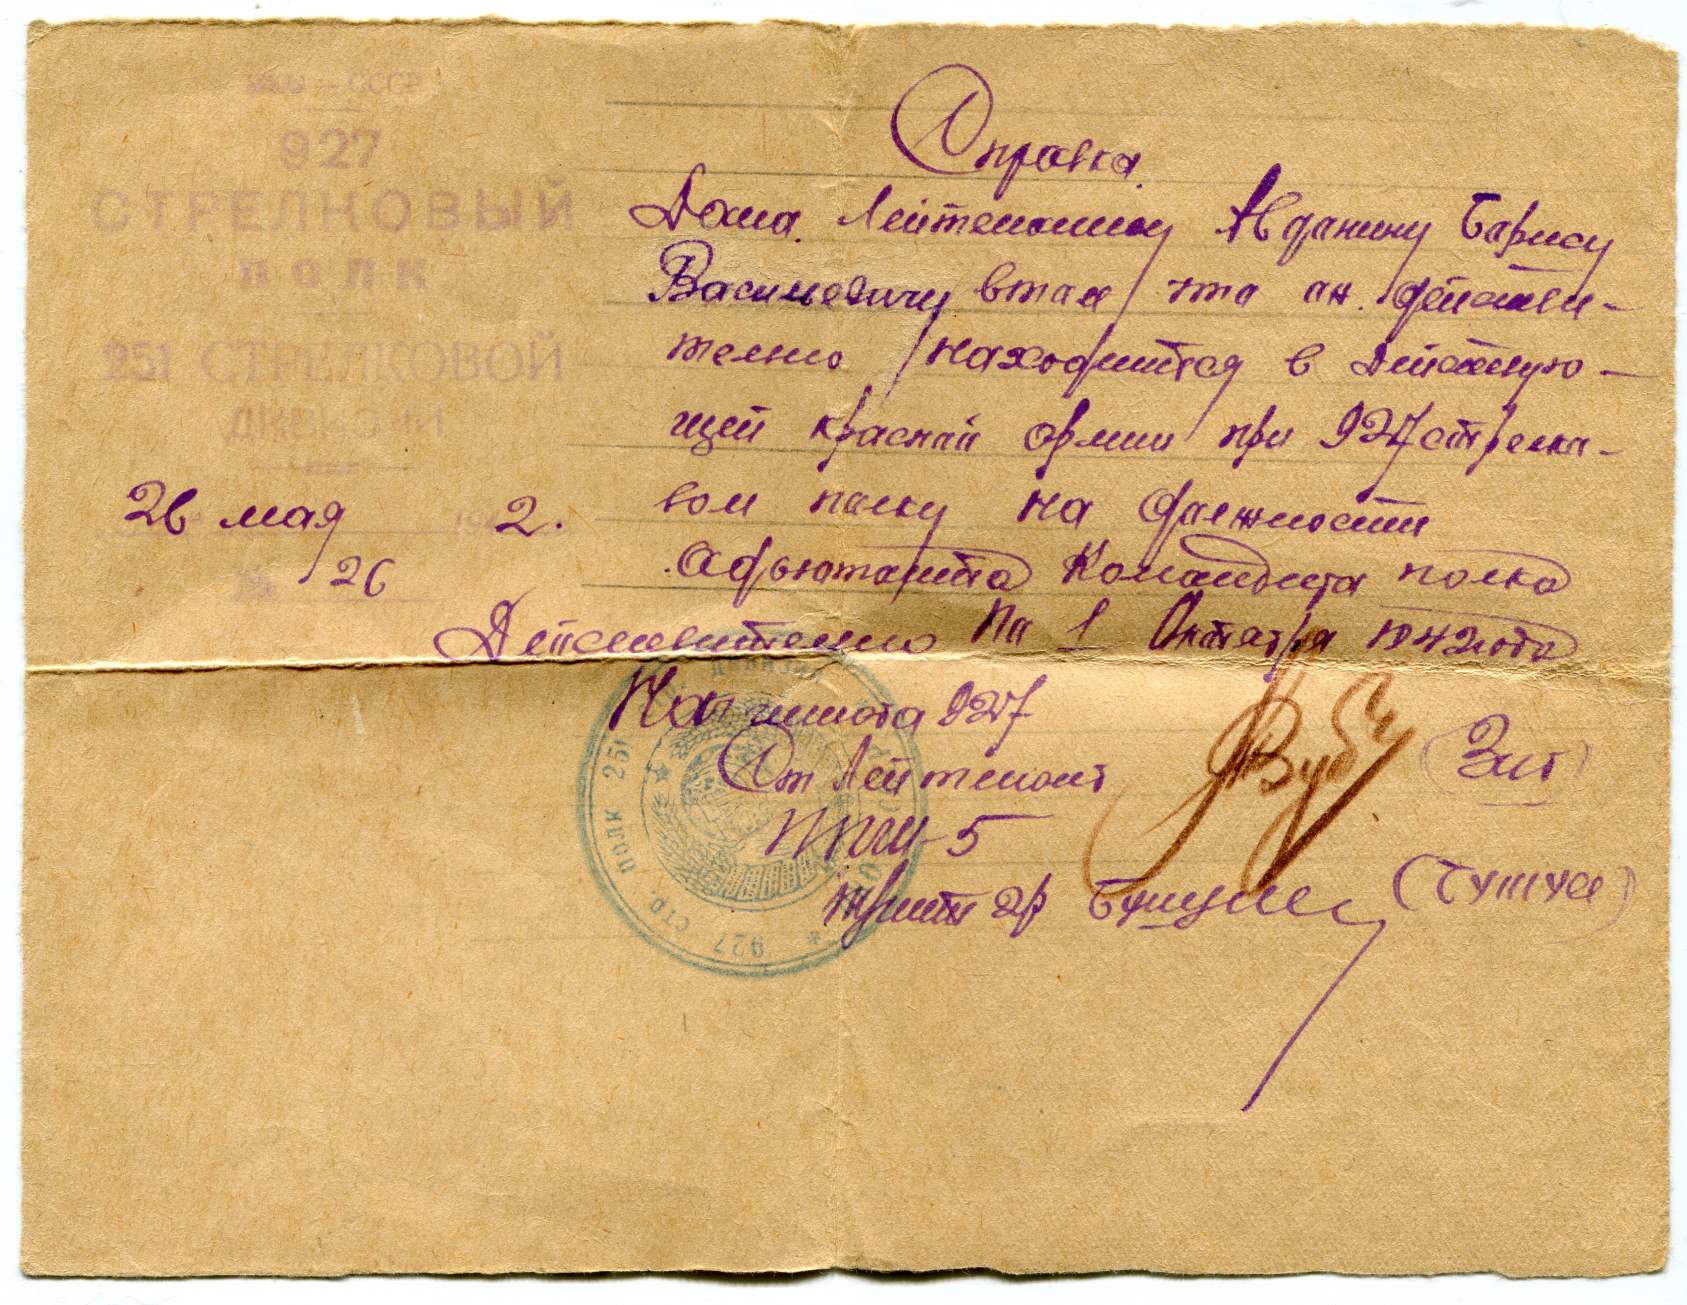 СССР
927
СТРЕЛКОВЫЙ
ПОЛК
251 СТРЕЛКОВОЙ
ДИВИЗИИ
26 мая 1942.
№ 26
Справка.
Дана Лейтенанту Авданину Барису
Василевичу втам что ан действи-
телно находится в Действую-
щей краснай армии при 927 стрелка-
вом палку на должности
Адьютанта Командира полка
Действително на 1 Октября 1942 года
Нач штаба 927
Ст Лейтенант
ППШ-5
(Зит)
(Бушуев)
927 СТР. ПОЛК 251